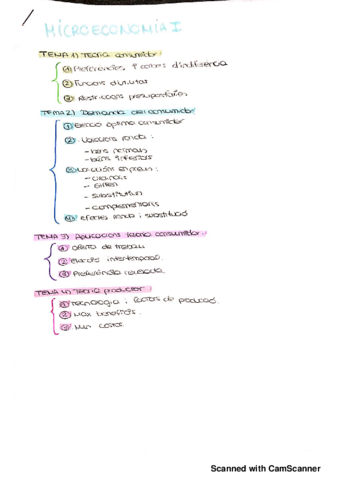 MICROECONOMÍA I
TEMA 1) Teoria consumidor:
① Preferències i corbes d'indiferència
② Funcions d'utilitat
③ Restriccions pressupostàries
TEMA 2) Demanda del consumidor
① Elecció òptima consumidor
② Variacions renda:
- béns normals
- béns inferiors
③ Variacions en preus:
- ordinaris
- Giffen
- substitutius
- complementaris
④ efectes renda i substitució
TEMA 3) Aplicacions teoria consumidor:
① Oferta de treball
② Elecció intertemporal
③ Preferència revelada
TEMA 4) Teoria productor:
① Tecnologia i factors de producció
② Max beneficis
③ Min costos
Scanned with CamScanner